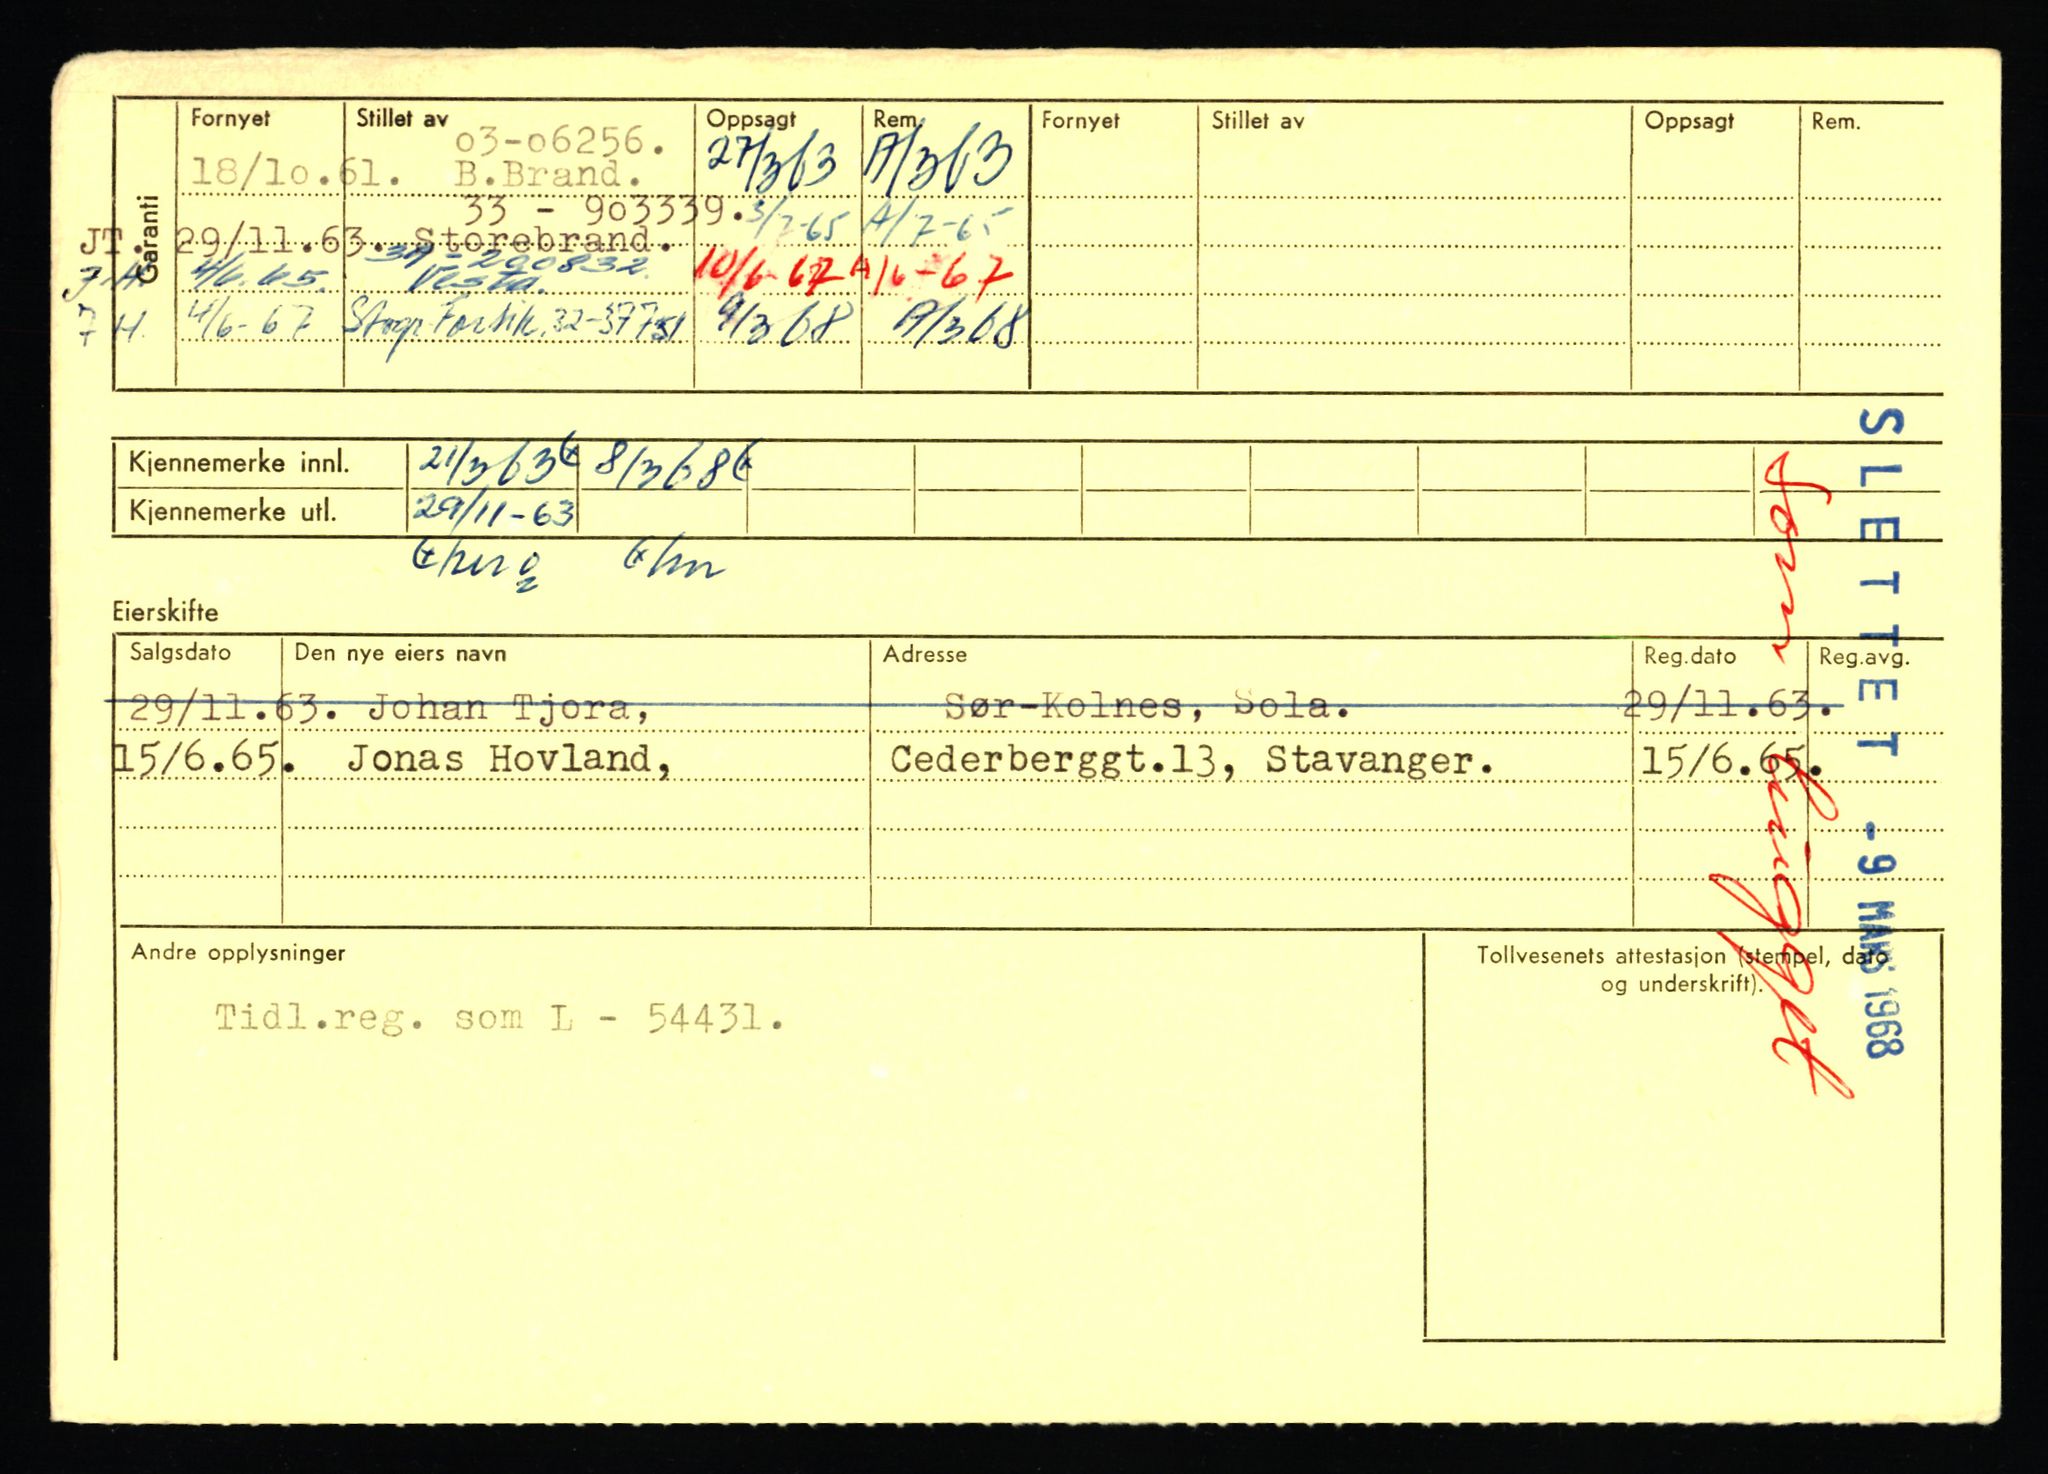 Garanti
Fornyet Stillet av Oppsagt Rem. Fornyet Stillet av Oppsagt Rem.
o3-o6256. 27/3 63 A/3 63
18/1o.61. B.Brand.
33 - 9o3339. 3/7-65 A/7-65
JT. 29/11.63. Storebrand.
J.H. 4/6.65. Vesta. 10/6-67 A/6-67
J H. 4/6-67 32-37751 9/3 68 A/3 68
Kjennemerke innl. 21/3 63 8/3 68
Kjennemerke utl. 29/11-63
Eierskifte
Salgsdato Den nye eiers navn Adresse Reg.dato Reg.avg.
29/11.63. Johan Tjora, Sør-Kolnes, Sola. 29/11.63.
15/6.65. Jonas Hovland, Cederberggt.13, Stavanger. 15/6.65.
Andre opplysninger
Tidl.reg. som L - 54431.
Tollvesenets attestasjon (stempel, dato
og underskrift).
SLETTET - 9 MARS 1968
som hugget